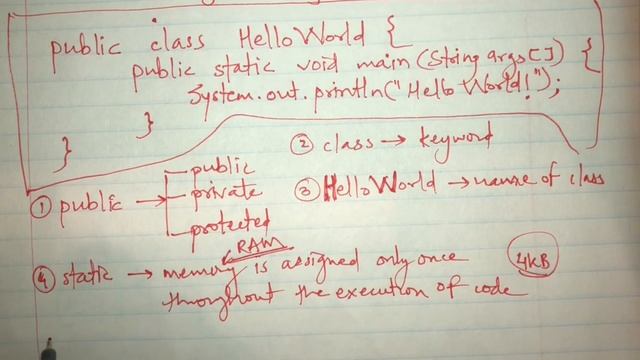 public class HelloWorld {
public static void main(String args[]) {
System.out.println("Hello World!");
}
}
② class → keyword
① public → public
private
protected
③ HelloWorld → name of class
RAM
④ static → memory is assigned only once
throughout the execution of code
4KB